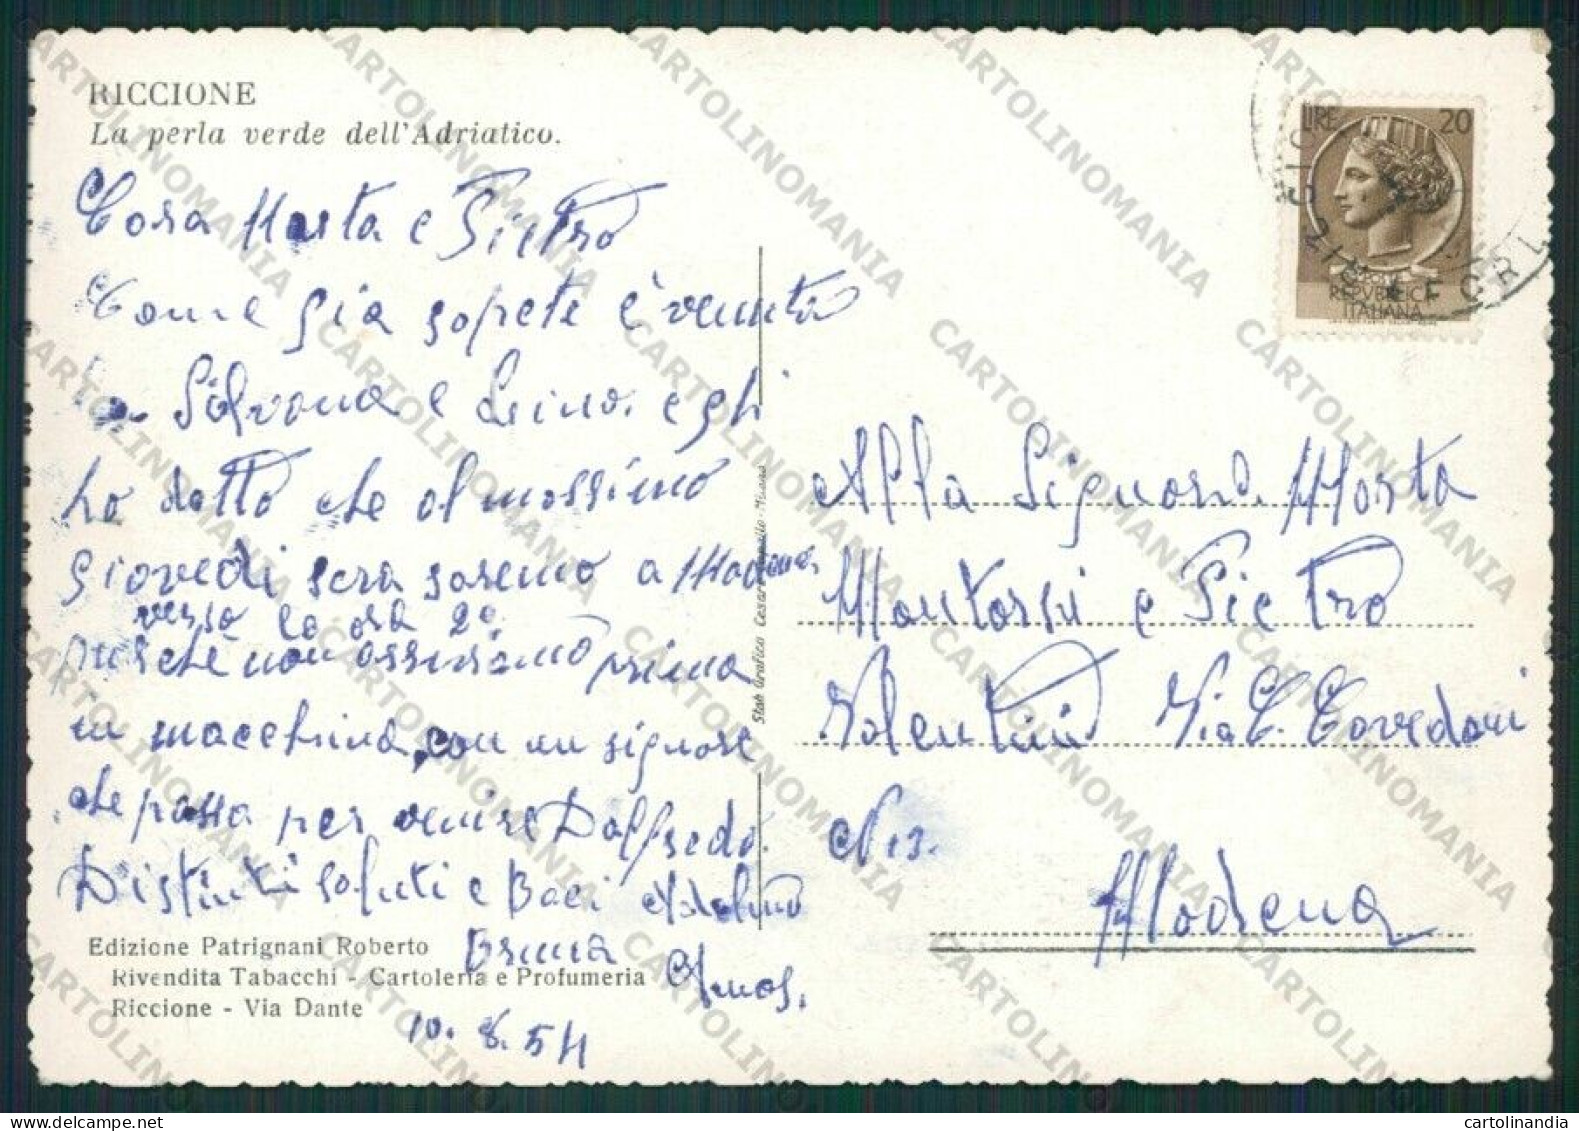 RICCIONE
La perla verde dell'Adriatico.
Cora Marta e Pietro
Come già sapete è venuta
la Silvana e Lino. e gli
ho detto che al massimo
giovedi sera saremo a Modena.
verso le ore 20
purchè non assumiamo prima
in macchina, con un signore
che passa per venire Dalfredo.
Distinti saluti e Baci Adelmo
Bruna
Amos.
10.8.54
Edizione Patrignani Roberto
Rivendita Tabacchi - Cartoleria e Profumeria
Riccione - Via Dante
Stab Grafico Cesare Milano
LIRE 20
REPVBBLICA
ITALIANA
Alla Signora. Marta
Montorsi e Pietro
Valentini Via C. Cavedoni
N 13.
Modena
CARTOLINOMANIA
cartolinandia